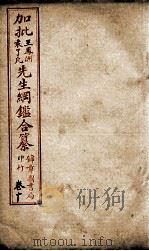 加批王鳳洲袁了凡先生綱鑑合纂
錦章圖書局印行
卷十